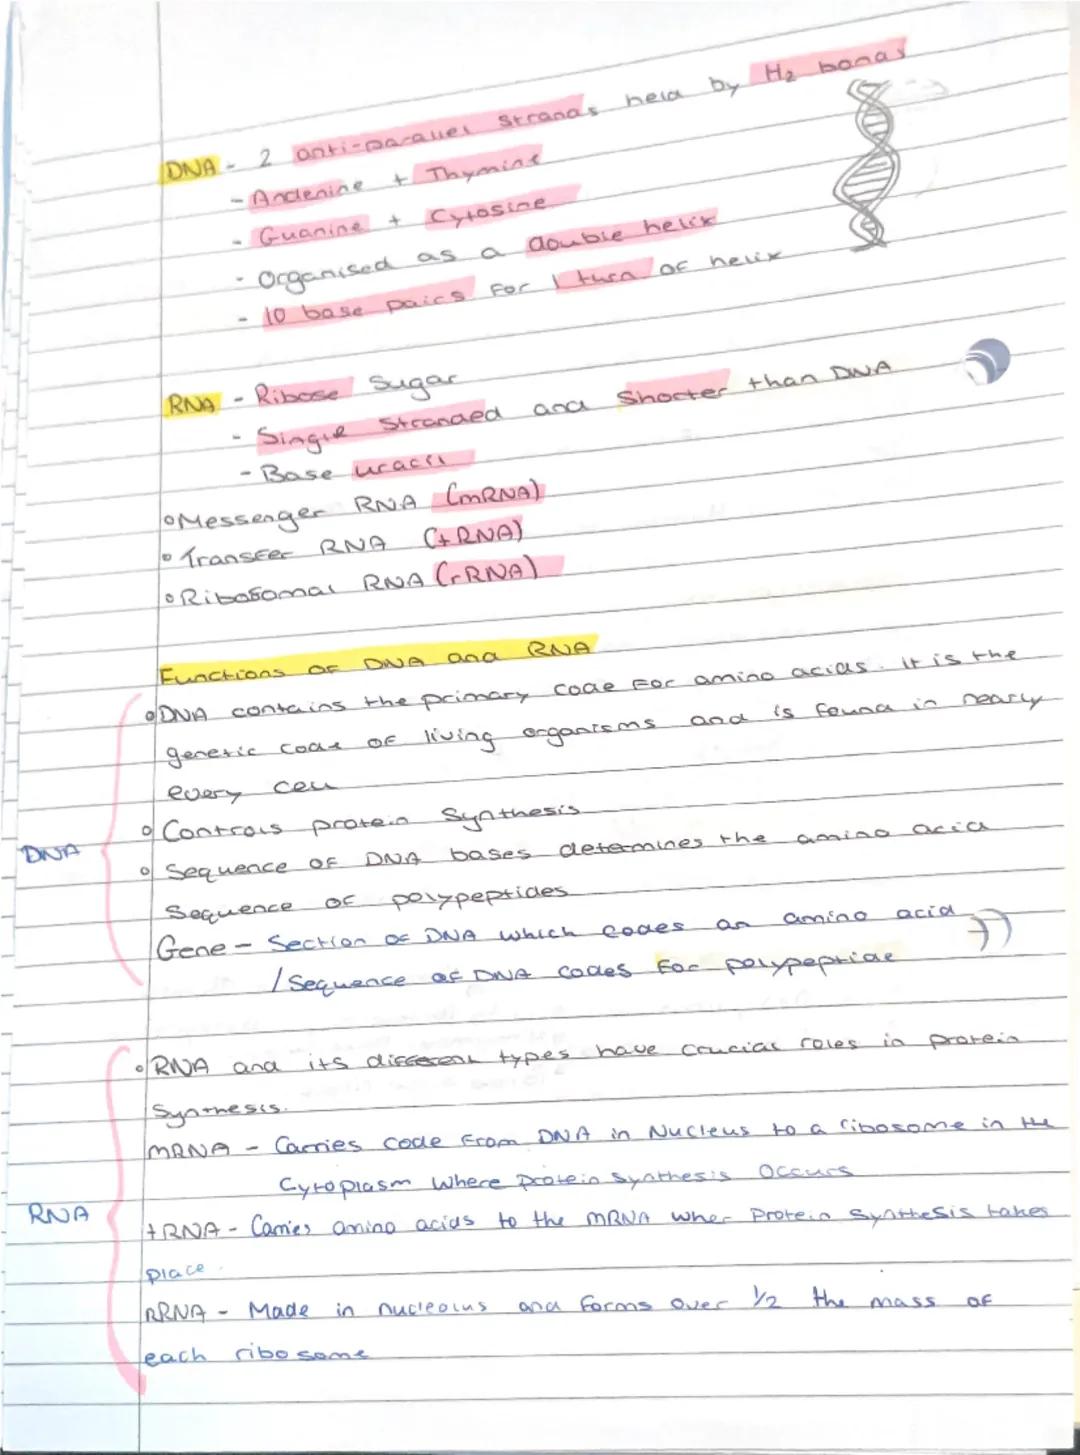 DNA - 2 anti-parallel strands held by H2 bonds
- Andenine + Thymine
- Guanine + Cytosine
- Organised as a double helix
- 10 base pairs for 1 turn of helix
RNA - Ribose Sugar
- Single Stranded and Shorter than DNA
- Base uracil
• Messenger RNA (mRNA)
• Transfer RNA (tRNA)
• Ribosomal RNA (rRNA)
Functions of DNA and RNA
• DNA contains the primary code for amino acids. it is the
genetic code of living organisms and is found in nearly
every cell
• Controls protein Synthesis
DNA
• Sequence of DNA bases determines the amino acid
Sequence of polypeptides
Gene - Section of DNA which codes an amino acid
/ Sequence of DNA codes for polypeptide
• RNA and its different types have crucial roles in protein
Synthesis.
mRNA - Carries code from DNA in Nucleus to a ribosome in the
Cytoplasm where protein synthesis occurs
RNA
tRNA - Carries amino acids to the mRNA wher protein synthesis takes
place.
rRNA - Made in nucleolus and forms over 1/2 the mass of
each ribosome